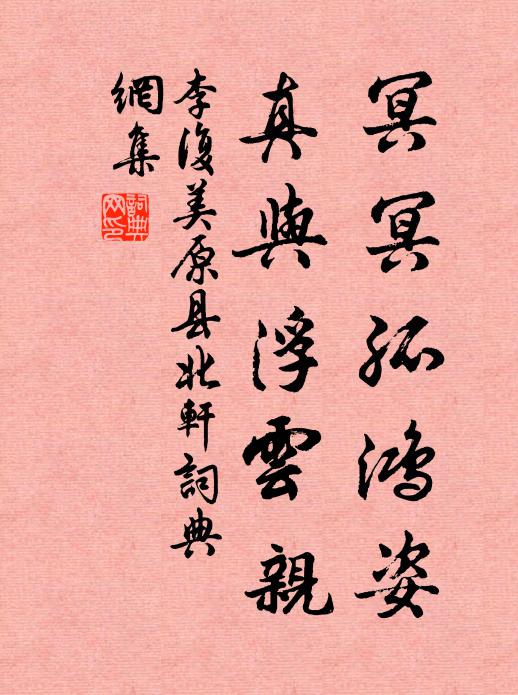 冥冥孤鸿姿
真與浮雲親
李復美原县北軒詞典
網集
詞典
网印